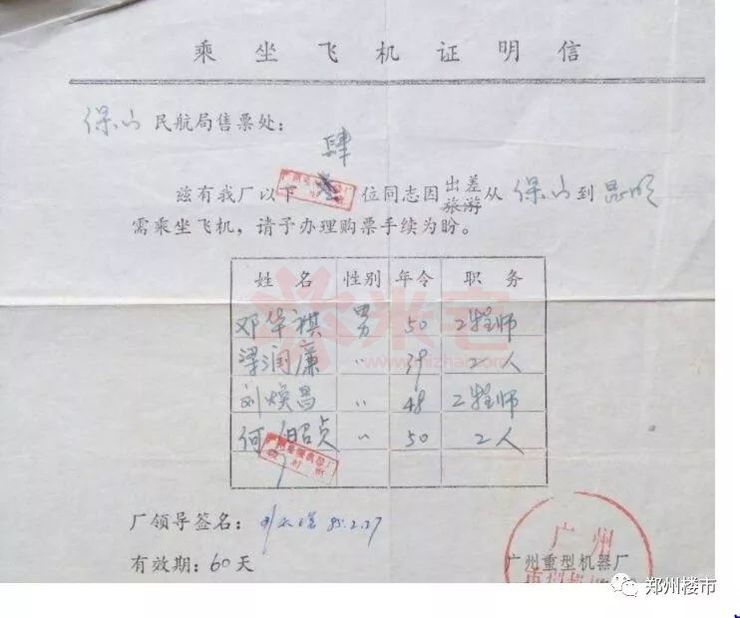 乘坐飞机证明信
保山民航局售票处：
肆
兹有我厂以下 位同志因出差旅游从保山到昆明
需乘坐飞机，请予办理购票手续为盼。
姓名 性别 年令 职务
邓华祺 男 50 工程师
梁润廉 〃 39 工人
刘焕昌 〃 48 工程师
何昭贞 〃 50 工人
米宅
www.mizhai.com
厂领导签名： 85.2.27
有效期：60天
广州
广州重型机器厂
郑州楼市